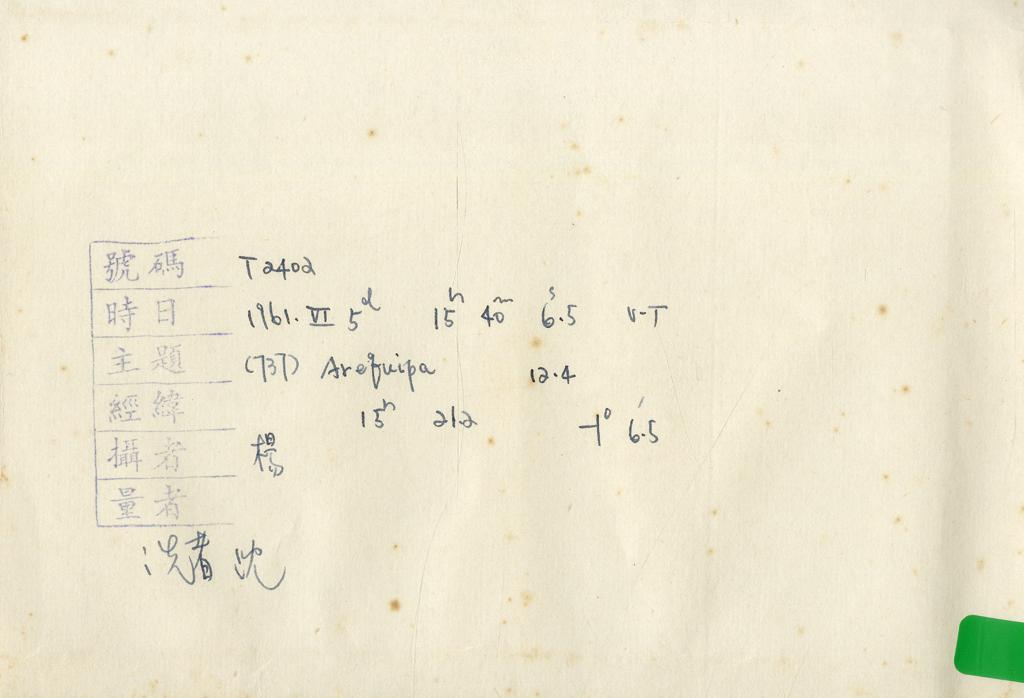 號碼 T2402
時日 1961. VI 5d 15h 40m 6s.5 U.T
主題 (737) Arequipa 12.4
經緯 15h 21.2 -1° 6'.5
攝者 楊
量者
洗者 沈